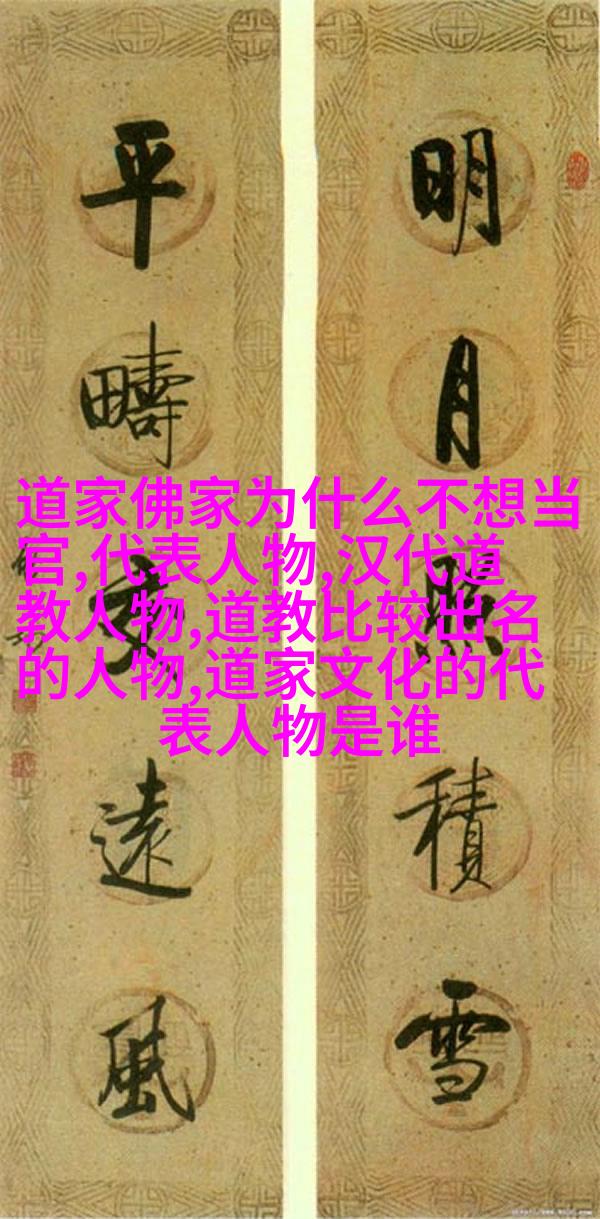 明月照積雪
平疇交遠風
道家佛家为什么不想当
官,代表人物,汉代道
教人物,道教比较出名
的人物,道家文化的代
表人物是谁